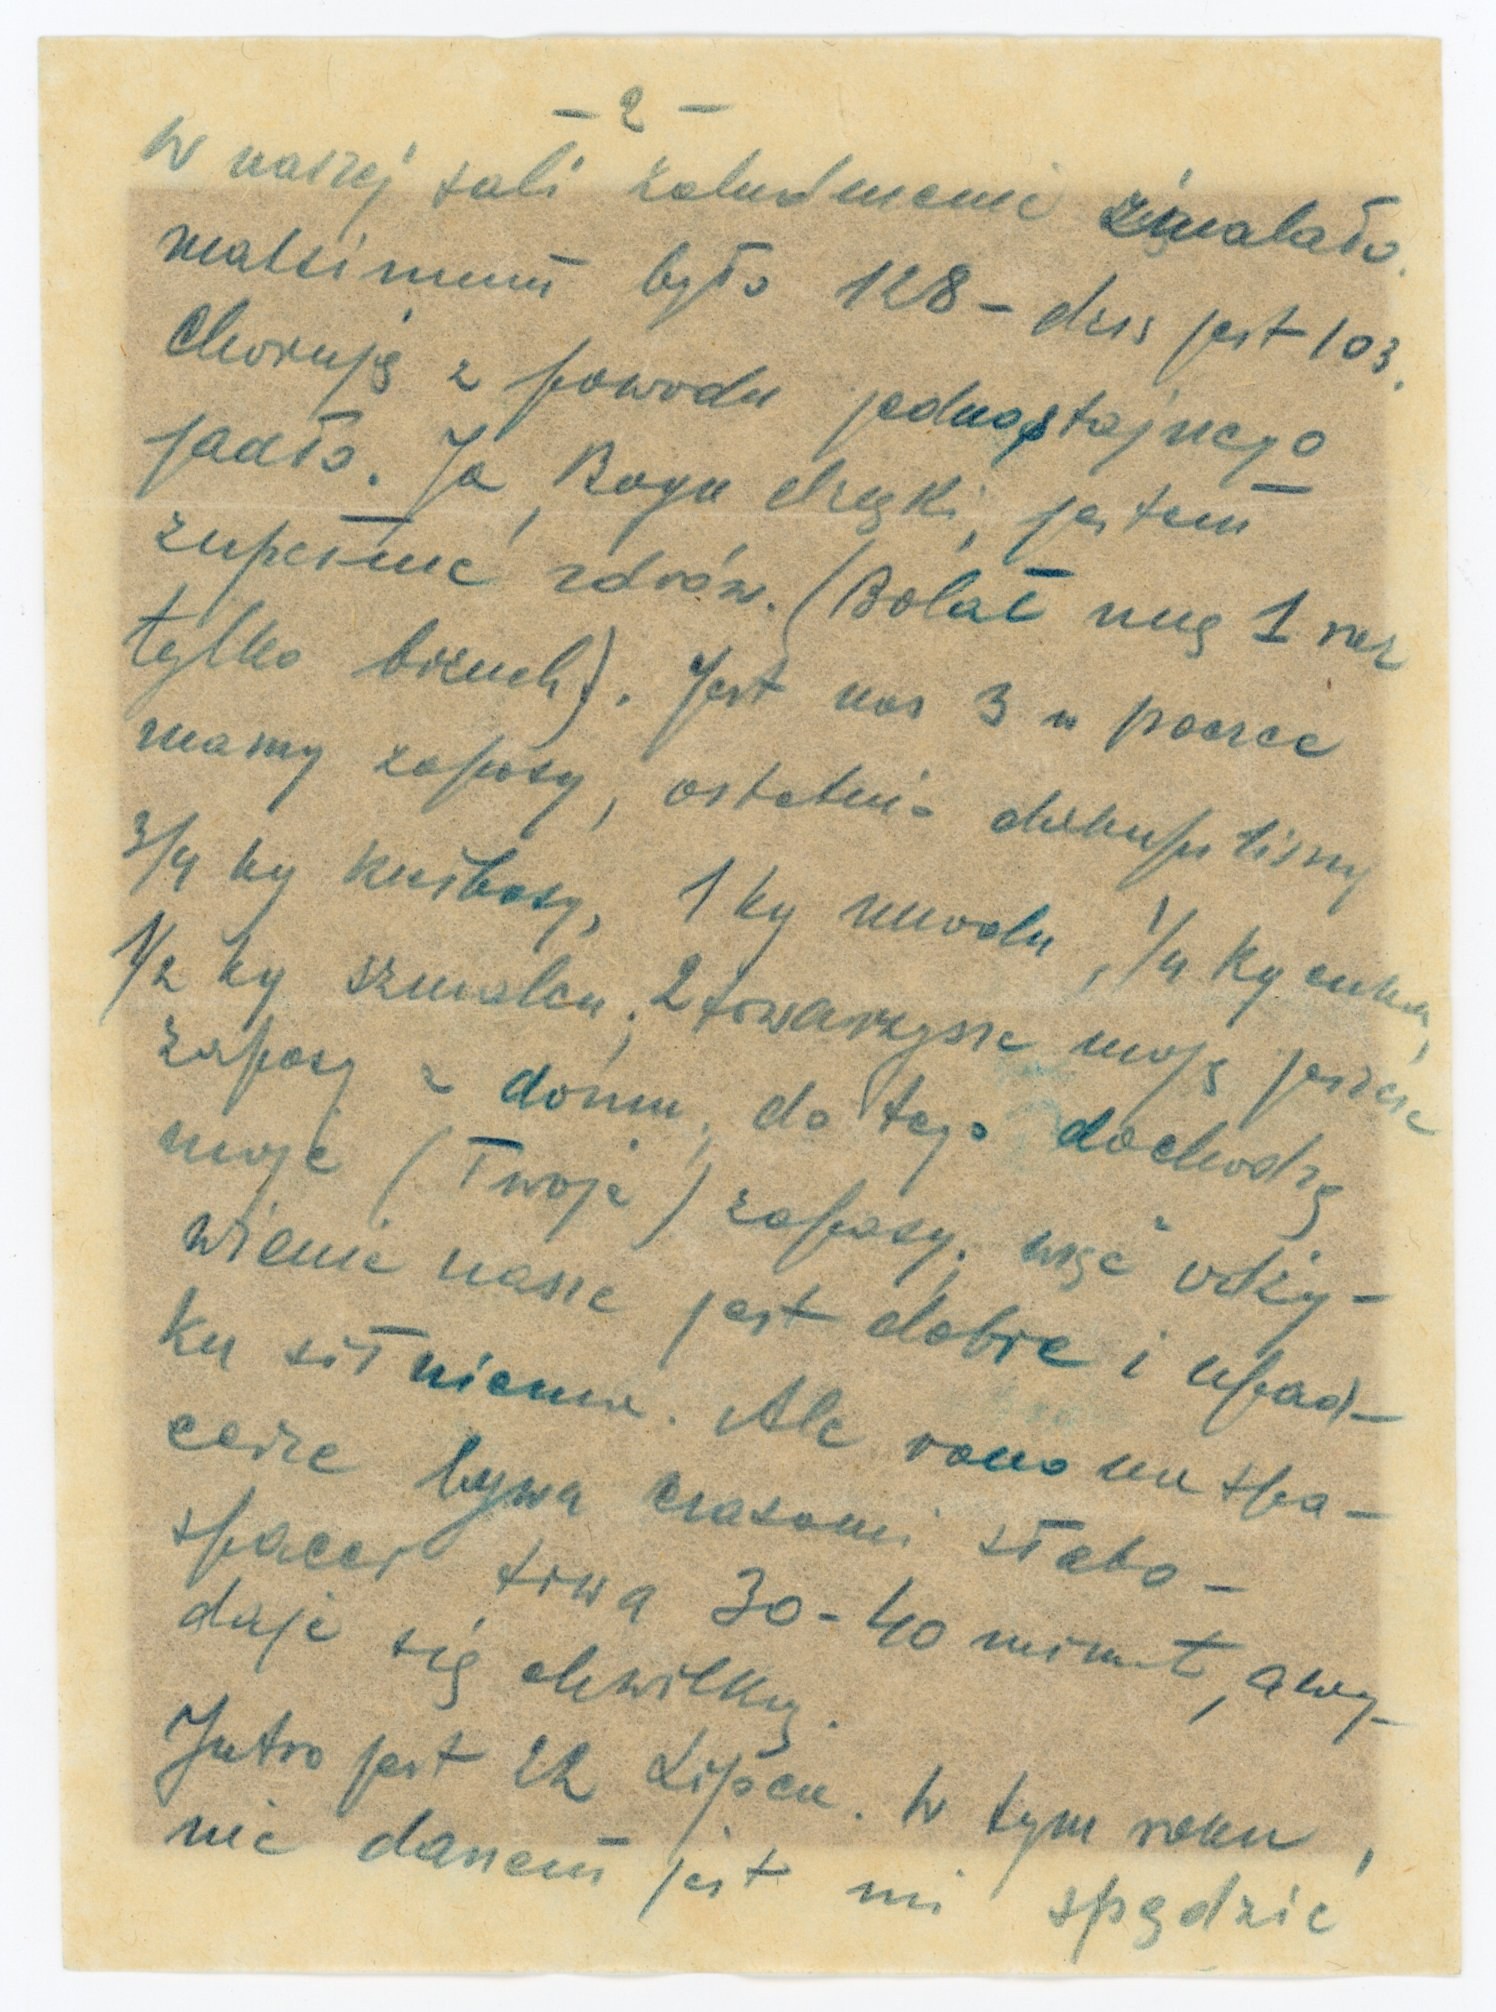 - 2 -
W naszej sali zaludnienie zmalało.
maksimum było 128 - dziś jest 103.
Chorują z powodu jednostajnego
jadła. Ja, Bogu dzięki, jestem
zupełnie zdrów. (Bolał mię 1 raz
tylko brzuch). Jest nas 3 w paczce
mamy zapasy, ostatnio dokupiliśmy
3/4 kg kiełbasy, 1 kg miodu, 1/4 kg cukru,
1/2 kg szmalcu; 2 towarzysze mają jeszcze
zapasy z domu, do tego dochodzą
moje (Twoje) zapasy, więc odży-
wianie nasze jest dobre i upad-
ku sił niema. Ale rano na spa-
cerze bywa czasami słabo -
spacer trwa 30-40 minut, a wy-
daje się chwilką.
Jutro jest 22 Lipca. W tym roku,
nie danem jest mi spędzić